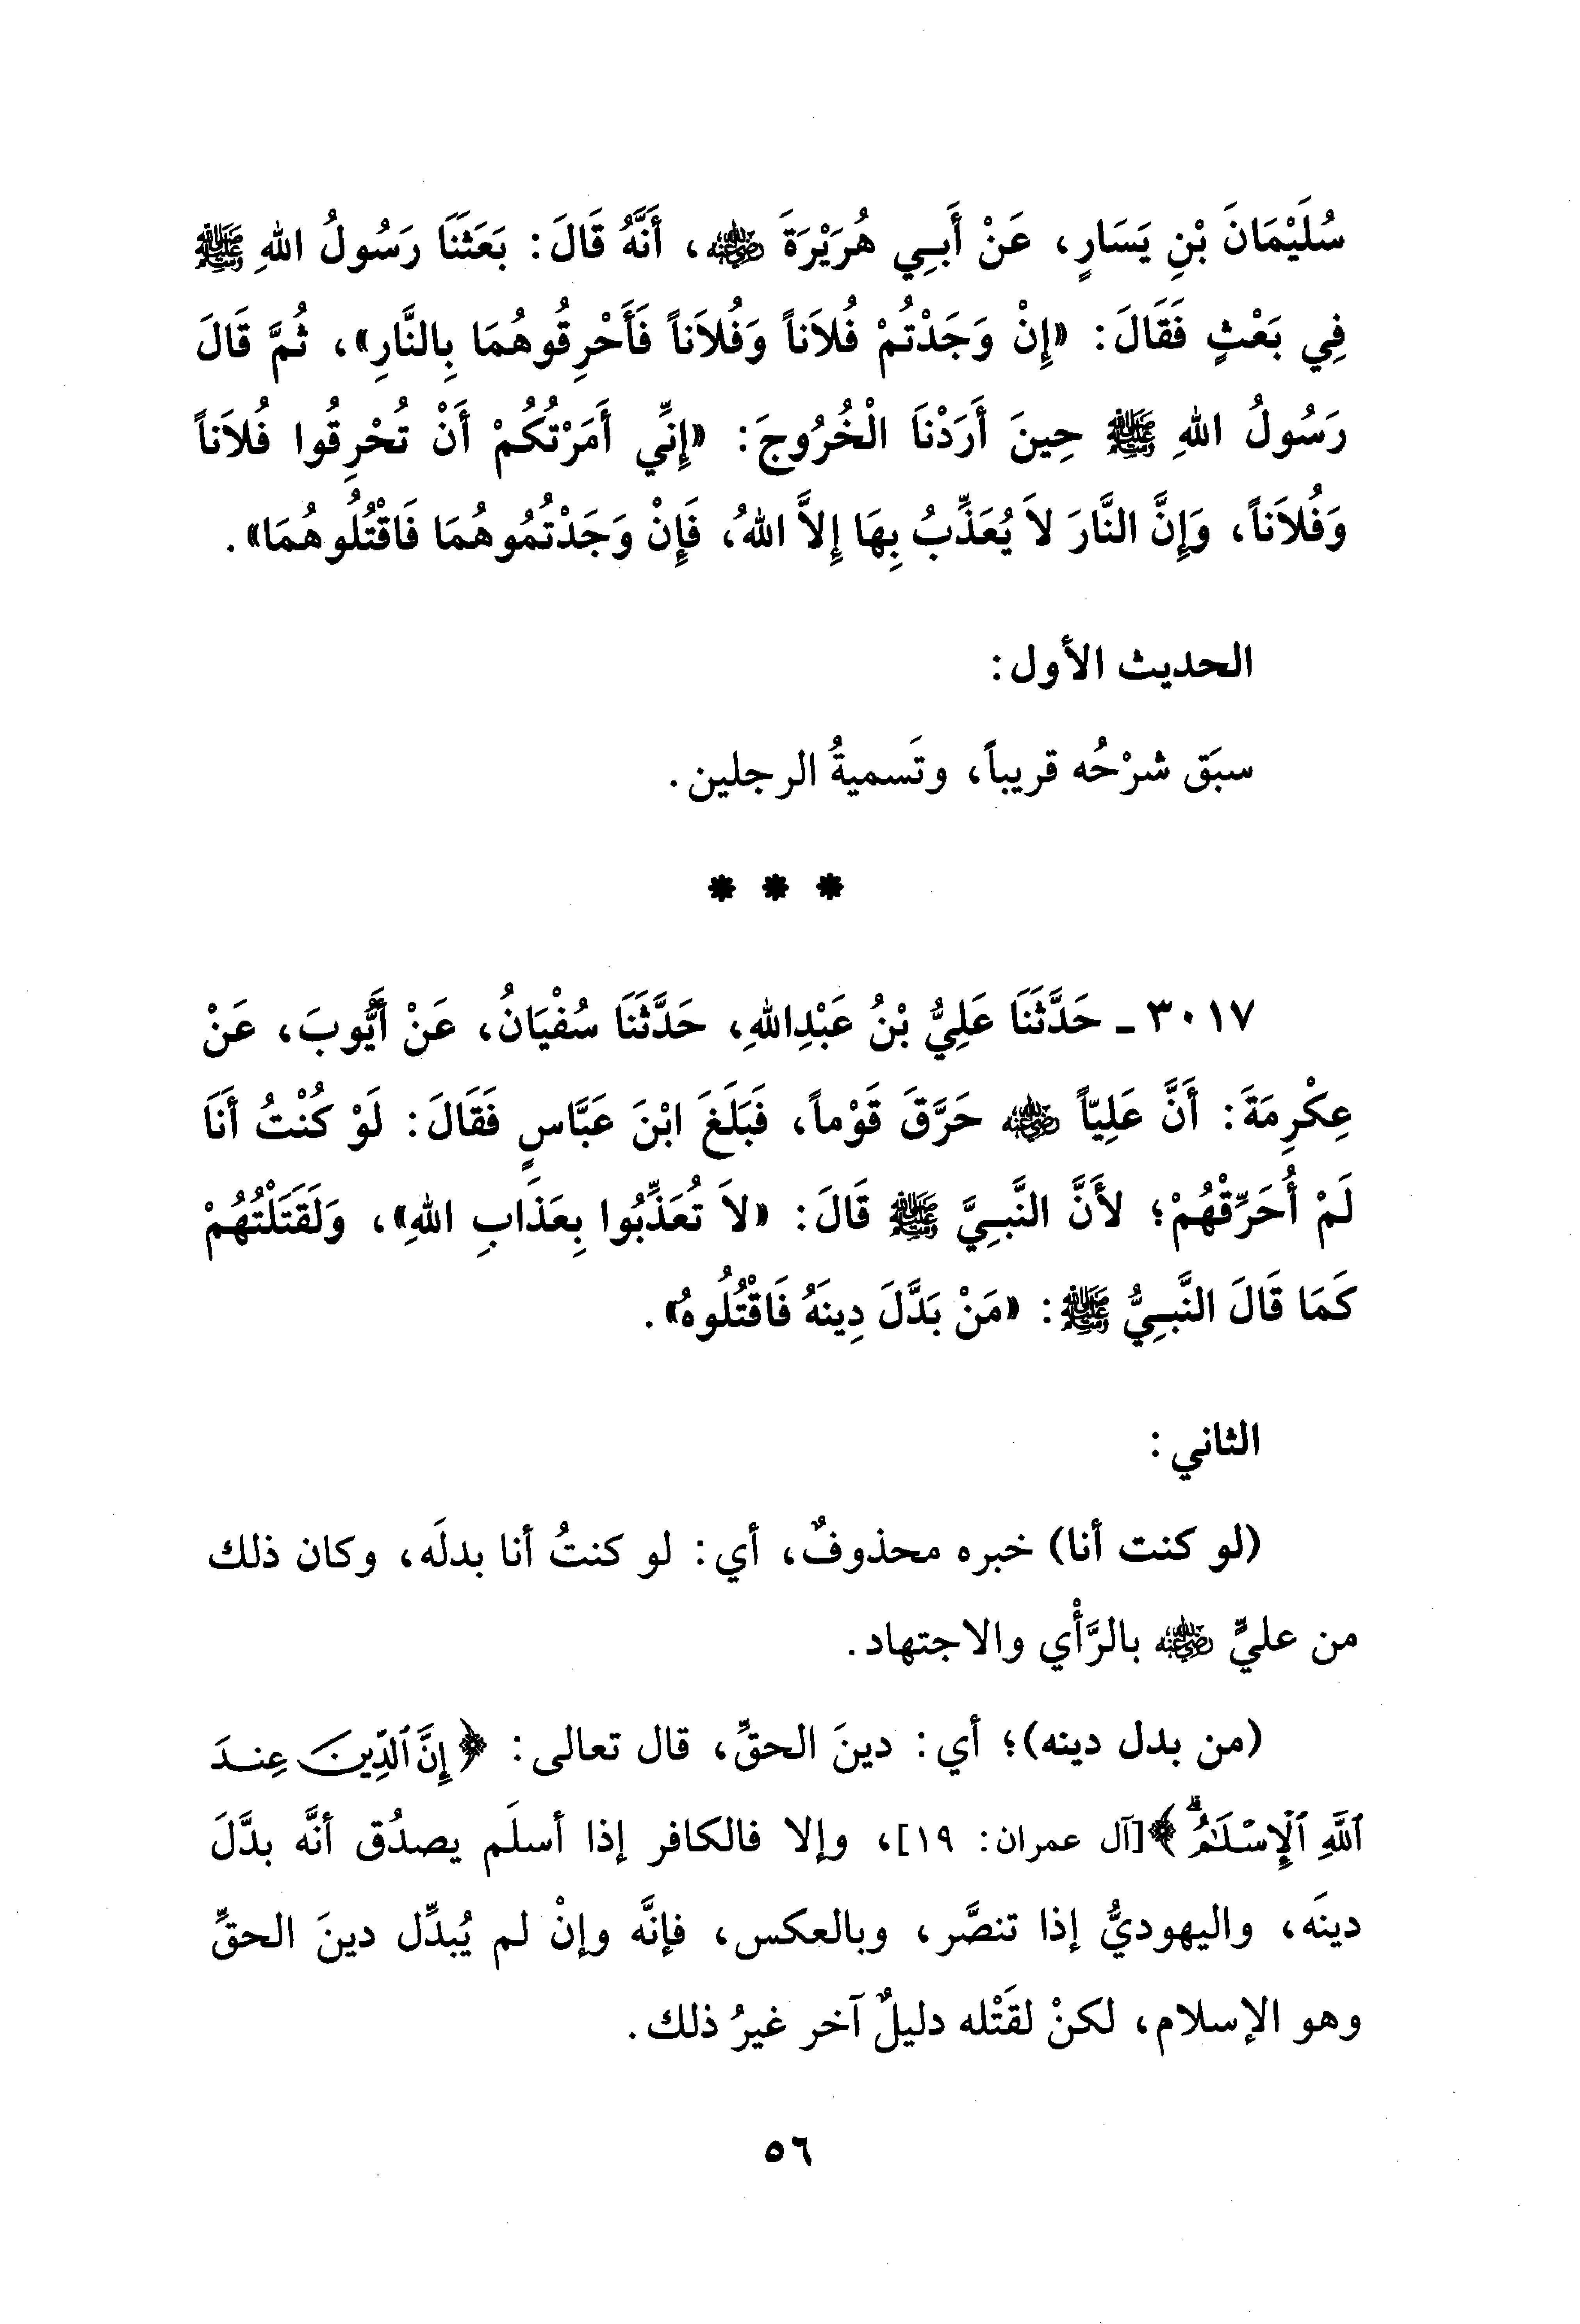 سُلَيْمَانَ بْنِ يَسَارٍ، عَنْ أَبِي هُرَيْرَةَ رضي الله عنه، أَنَّهُ قَالَ: بَعَثَنَا رَسُولُ اللهِ ﷺ
فِي بَعْثٍ فَقَالَ: «إِنْ وَجَدْتُمْ فُلاَناً وَفُلاَناً فَأَحْرِقُوهُمَا بِالنَّارِ»، ثُمَّ قَالَ
رَسُولُ اللهِ ﷺ حِينَ أَرَدْنَا الْخُرُوجَ: «إِنِّي أَمَرْتُكُمْ أَنْ تُحْرِقُوا فُلاَناً
وَفُلاَناً، وَإِنَّ النَّارَ لاَ يُعَذِّبُ بِهَا إِلاَّ اللهُ، فَإِنْ وَجَدْتُمُوهُمَا فَاقْتُلُوهُمَا».
الحديث الأول:
سبَق شرْحُه قريباً، وتَسميةُ الرجلين.
* * *
٣٠١٧ ـ حَدَّثَنَا عَلِيُّ بْنُ عَبْدِاللهِ، حَدَّثَنَا سُفْيَانُ، عَنْ أَيُّوبَ، عَنْ
عِكْرِمَةَ: أَنَّ عَلِيّاً رضي الله عنه حَرَّقَ قَوْماً، فَبَلَغَ ابْنَ عَبَّاسٍ فَقَالَ: لَوْ كُنْتُ أَنَا
لَمْ أُحَرِّقْهُمْ؛ لأَنَّ النَّبِيَّ ﷺ قَالَ: «لاَ تُعَذِّبُوا بِعَذَابِ اللهِ»، وَلَقَتَلْتُهُمْ
كَمَا قَالَ النَّبِيُّ ﷺ: «مَنْ بَدَّلَ دِينَهُ فَاقْتُلُوهُ».
الثاني:
(لو كنت أنا) خبره محذوفٌ، أي: لو كنتُ أنا بدلَه، وكان ذلك
من عليٍّ رضي الله عنه بالرَّأْي والاجتهاد.
(من بدل دينه)؛ أي: دينَ الحقِّ، قال تعالى: ﴿إِنَّ ٱلدِّينَ عِندَ
ٱللَّهِ ٱلْإِسْلَٰمُ ۗ﴾[آل عمران: ١٩]، وإلا فالكافر إذا أسلَم يصدُق أنَّه بدَّلَ
دينَه، واليهوديُّ إذا تنصَّر، وبالعكس، فإنَّه وإنْ لم يُبدِّل دينَ الحقِّ
وهو الإسلام، لكنْ لقَتْله دليلٌ آخر غيرُ ذلك.
٥٦